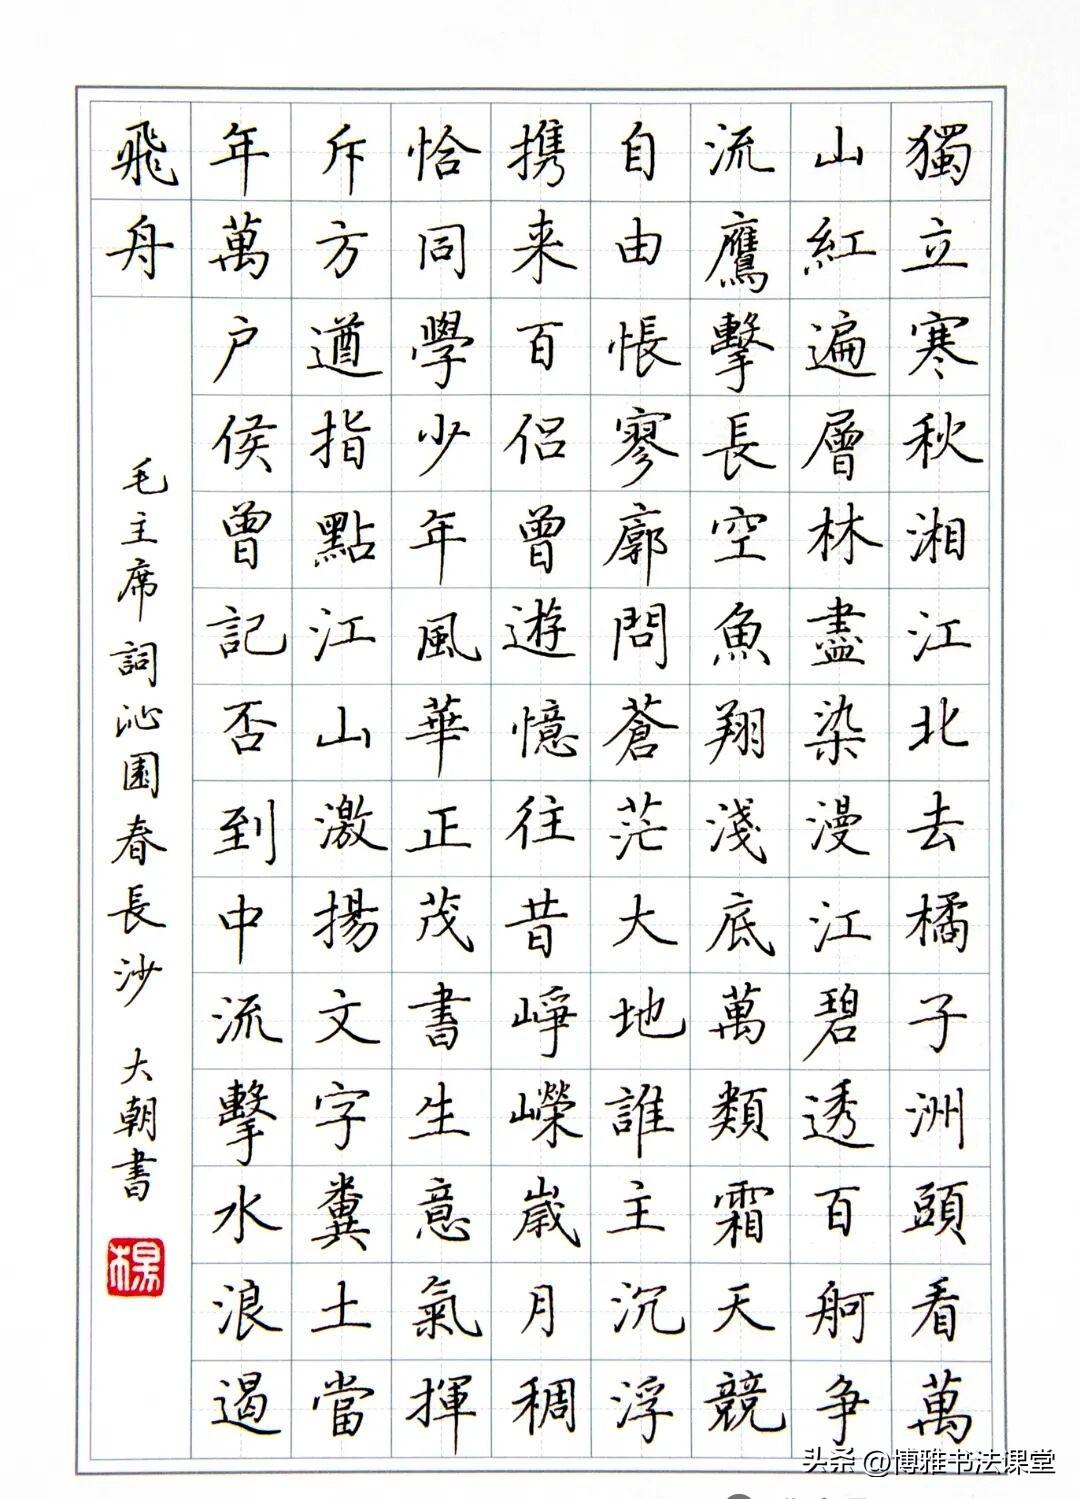 獨立寒秋湘江北去橘子洲頭看萬
山紅遍層林盡染漫江碧透百舸争
流鷹擊長空魚翔淺底萬類霜天競
自由悵寥廓問蒼茫大地誰主沉浮
携来百侣曾遊憶往昔崢嶸歲月稠
恰同學少年風華正茂書生意氣揮
斥方遒指點江山激揚文字糞土當
年萬户侯曾記否到中流擊水浪遏
飛舟
毛主席詞沁園春長沙 大朝書
楊
头条 @博雅书法课堂